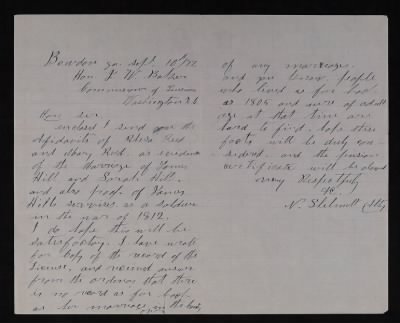 Bowdon Ga. Sept. 10th/72
Hon. J. H. Baker
Commissioner of Pensions
Washington D.C
Hon. sir.
enclosed I send you the
affidavits of Reed
and Mary Reed, as evidence
of the Marriage of James
Hill and Sarah Hill,
and also proof of James
Hills services as a soldier
in the war of 1812.
I do hope this will be
satisfactory. I have wrote
for Copy of the record of the
License, and received answer
from the ordinary that there
is no record as far back
as his marriage in the county
of any marriages.
and you know, people
who lived as far back
as 1805 and were of adult
age at that time are
hard to find. hope these
facts will be duly con-
sidered, and the pension
certificate will be
very Respectfully
&c
N. Shelnutt Atty